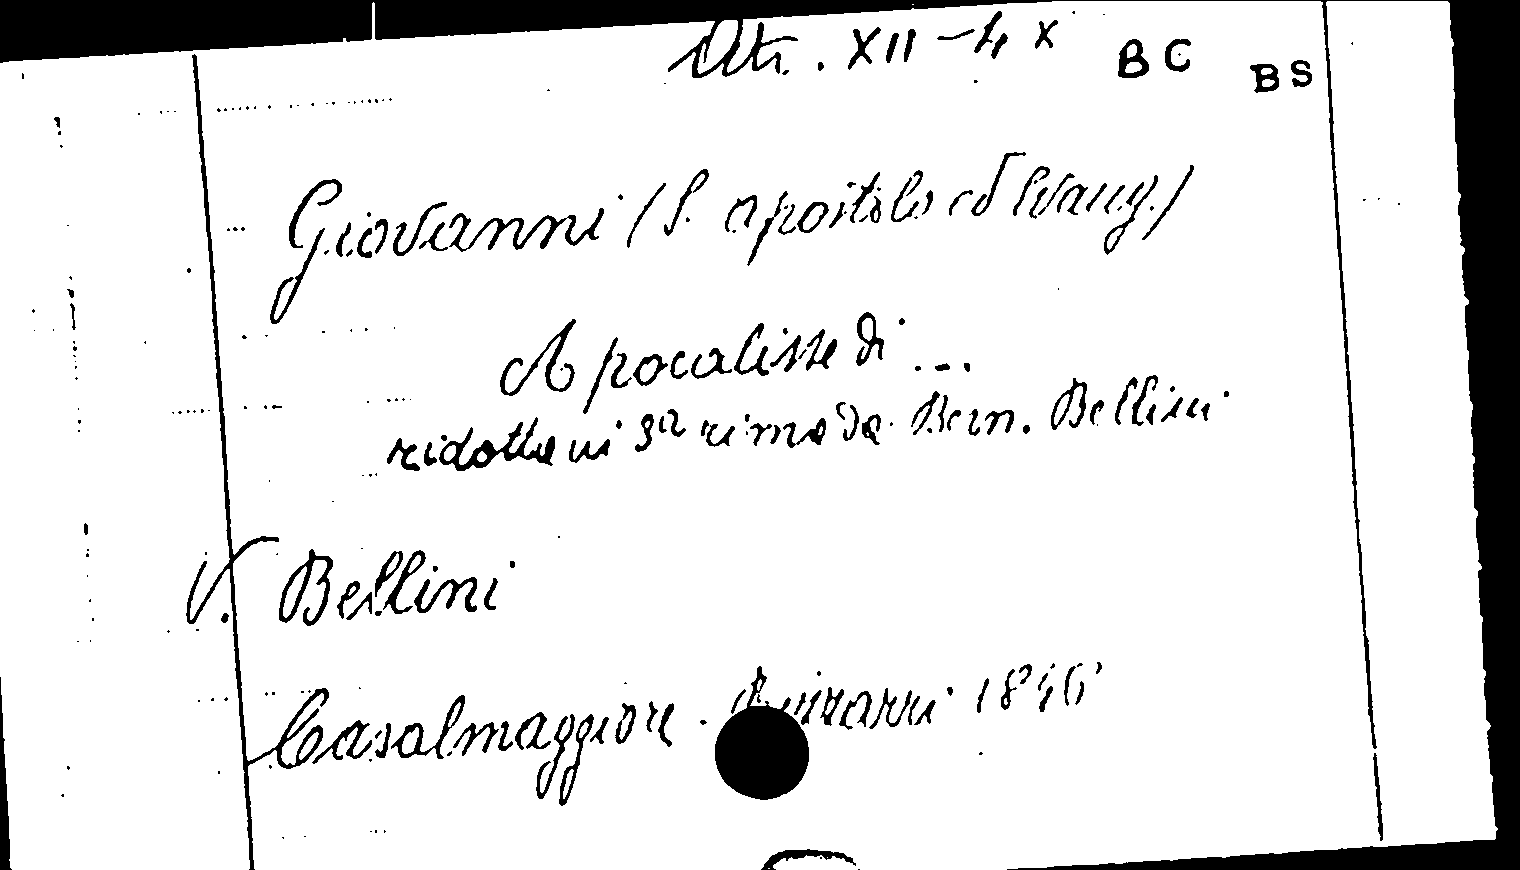 XII - 4 x BC BS
Giovanni (S. apostolo ed Evang.)
Apocalisse di ...
ridotta in 3ª rima da Bern. Bellini
V. Bellini
Casalmaggiore. 1846